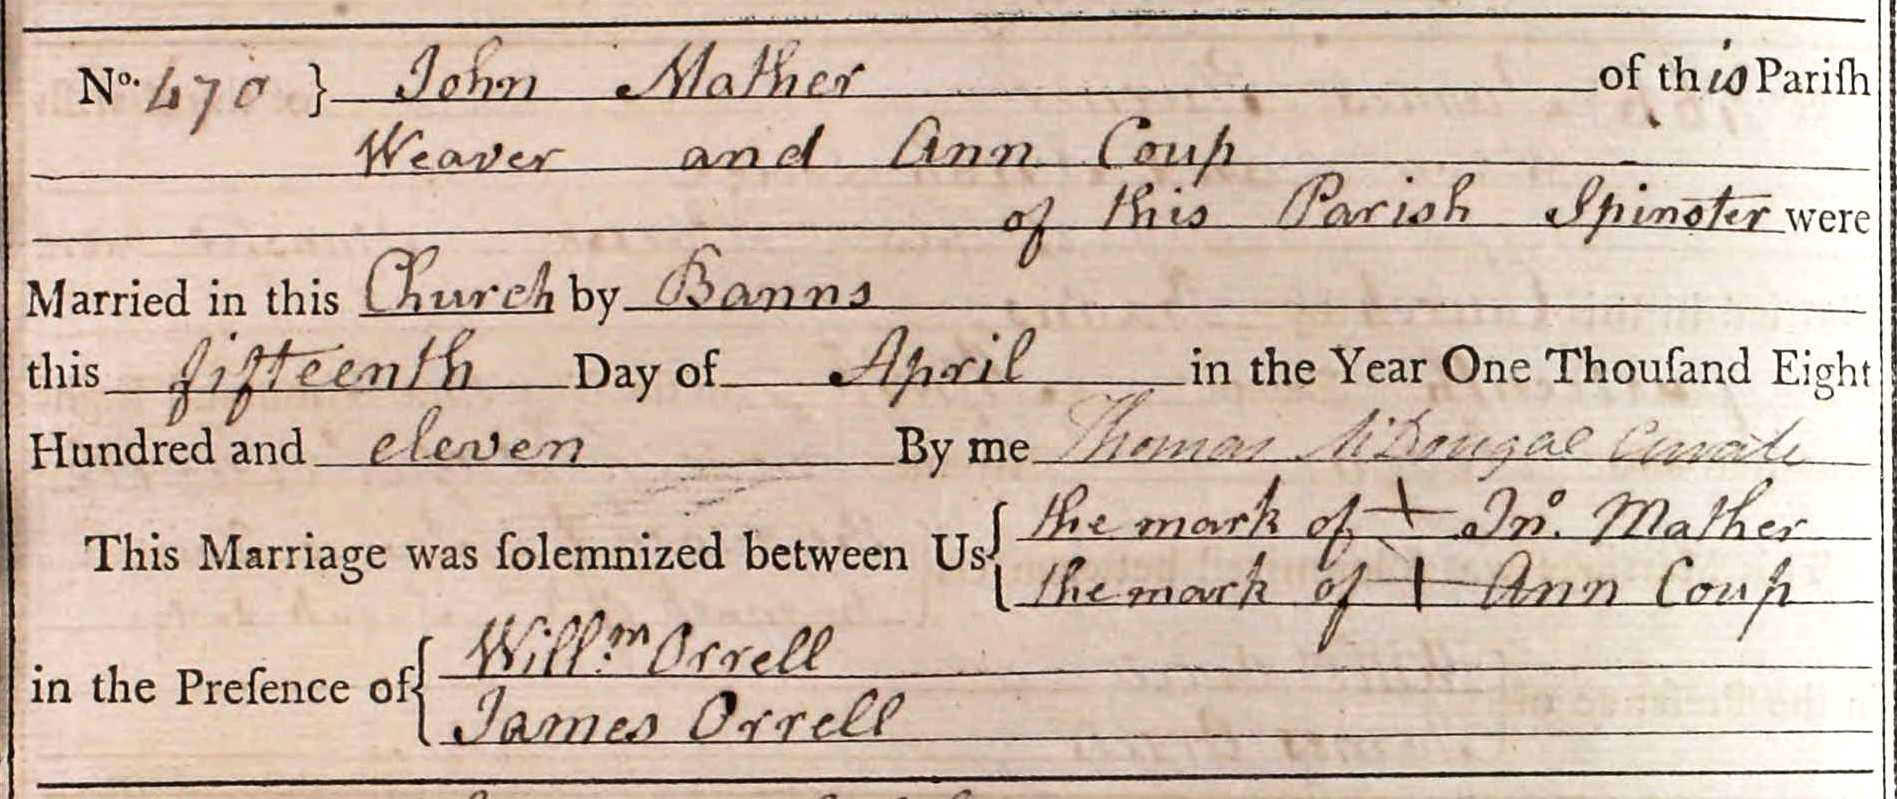 No. 470 } John Mather of this Pariſh
Weaver and Ann Coup
of this Parish Spinster were
Married in this Church by Banns
this fifteenth Day of April in the Year One Thouſand Eight
Hundred and eleven By me Thomas McDougal Curate
This Marriage was ſolemnized between Us { the mark of + Jno. Mather
the mark of + Ann Coup
in the Preſence of { Willm. Orrell
James Orrell